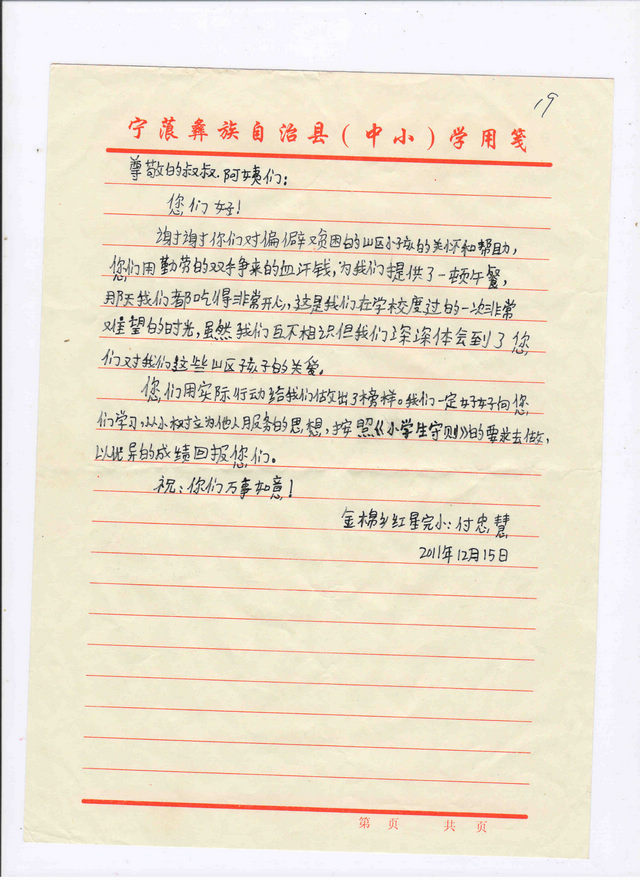 19
宁蒗彝族自治县(中小)学用笺
尊敬的叔叔.阿姨们:
您们好!
谢谢你们对偏僻贫困的山区小孩的关怀和帮助,
您们用勤劳的双手争来的血汗钱,为我们提供了一顿午餐,
那天我们都吃得非常开心,这是我们在学校度过的一次非常
难望的时光,虽然我们互不相识但我们深深体会到了您
们对我们这些山区孩子的关爱。
您们用实际行动给我们做出了榜样。我们一定好好向您
们学习,从小树立为他人服务的思想,按照《小学生守则》的要求去做,
以优异的成绩回报您们。
祝:你们万事如意!
金棉乡红星完小:付忠慧
2011年12月15日
第 页 共 页